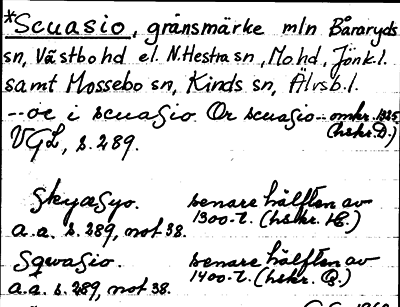 *Scuasio, gränsmärke mln Båraryds
sn, Västbo hd el. N.Hestra sn, Mo hd, Jönk.l.
samt Mossebo sn, Kinds sn, Älvsb.l.
--oc i scuasio. Or scuasio-- omkr. 1325
(hskr. D.)
VGL, s. 289.
Skyæsyo. senare hälften av
1300-t. (hskr. E.)
a.a. s. 289, not 38.
Sqwasio. senare hälften av
1400-t. (hskr. G.)
a.a. s. 289, not 38.